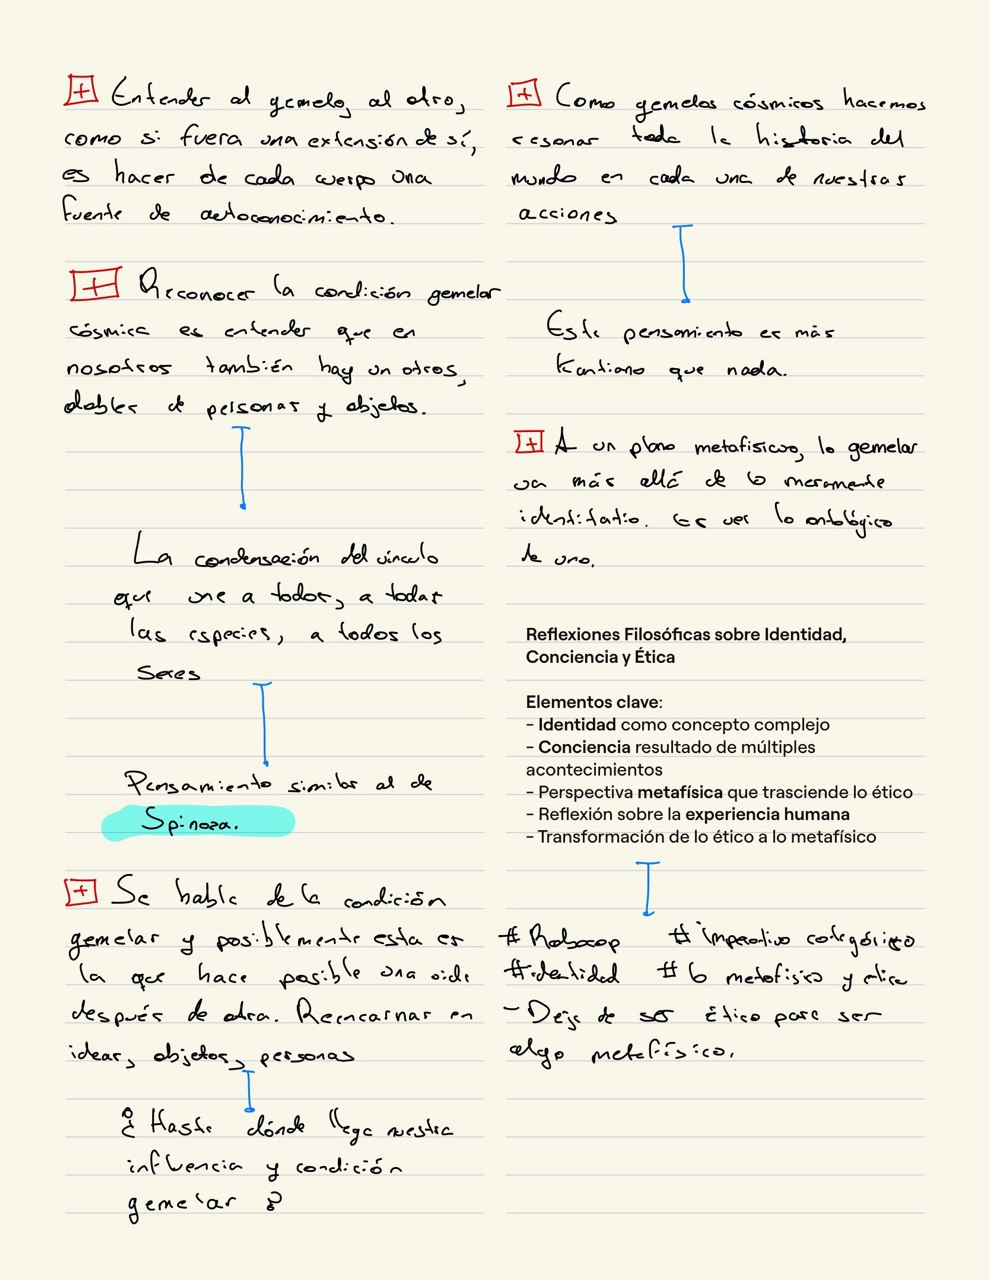 Entender al gemelo, al otro,
como si fuera una extensión de sí,
es hacer de cada cuerpo una
fuente de autoconocimiento.
Reconocer la condición gemelar
cósmica es entender que en
nosotros también hay un otros,
dobles de personas y objetos.
La condensación del vínculo
que une a todos, a todas
las especies, a todos los
seres
Pensamiento similar al de
Spinoza.
Se habla de la condición
gemelar y posiblemente esta es
la que hace posible una vida
después de otra. Reencarnar en
ideas, objetos, personas
¿Hasta dónde llega nuestra
influencia y condición
gemelar?
Como gemelos cósmicos hacemos
resonar toda la historia del
mundo en cada una de nuestras
acciones
Este pensamiento es más
Kantiano que nada.
A un plano metafísico, lo gemelar
va más allá de lo meramente
identitario. Es ver lo ontológico
de uno.
Reflexiones Filosóficas sobre Identidad,
Conciencia y Ética
Elementos clave:
- Identidad como concepto complejo
- Conciencia resultado de múltiples
acontecimientos
- Perspectiva metafísica que trasciende lo ético
- Reflexión sobre la experiencia humana
- Transformación de lo ético a lo metafísico
#Robocop #imperativo categórico
#identidad #lo metafísico y ética
- Deja de ser ético para ser
algo metafísico.